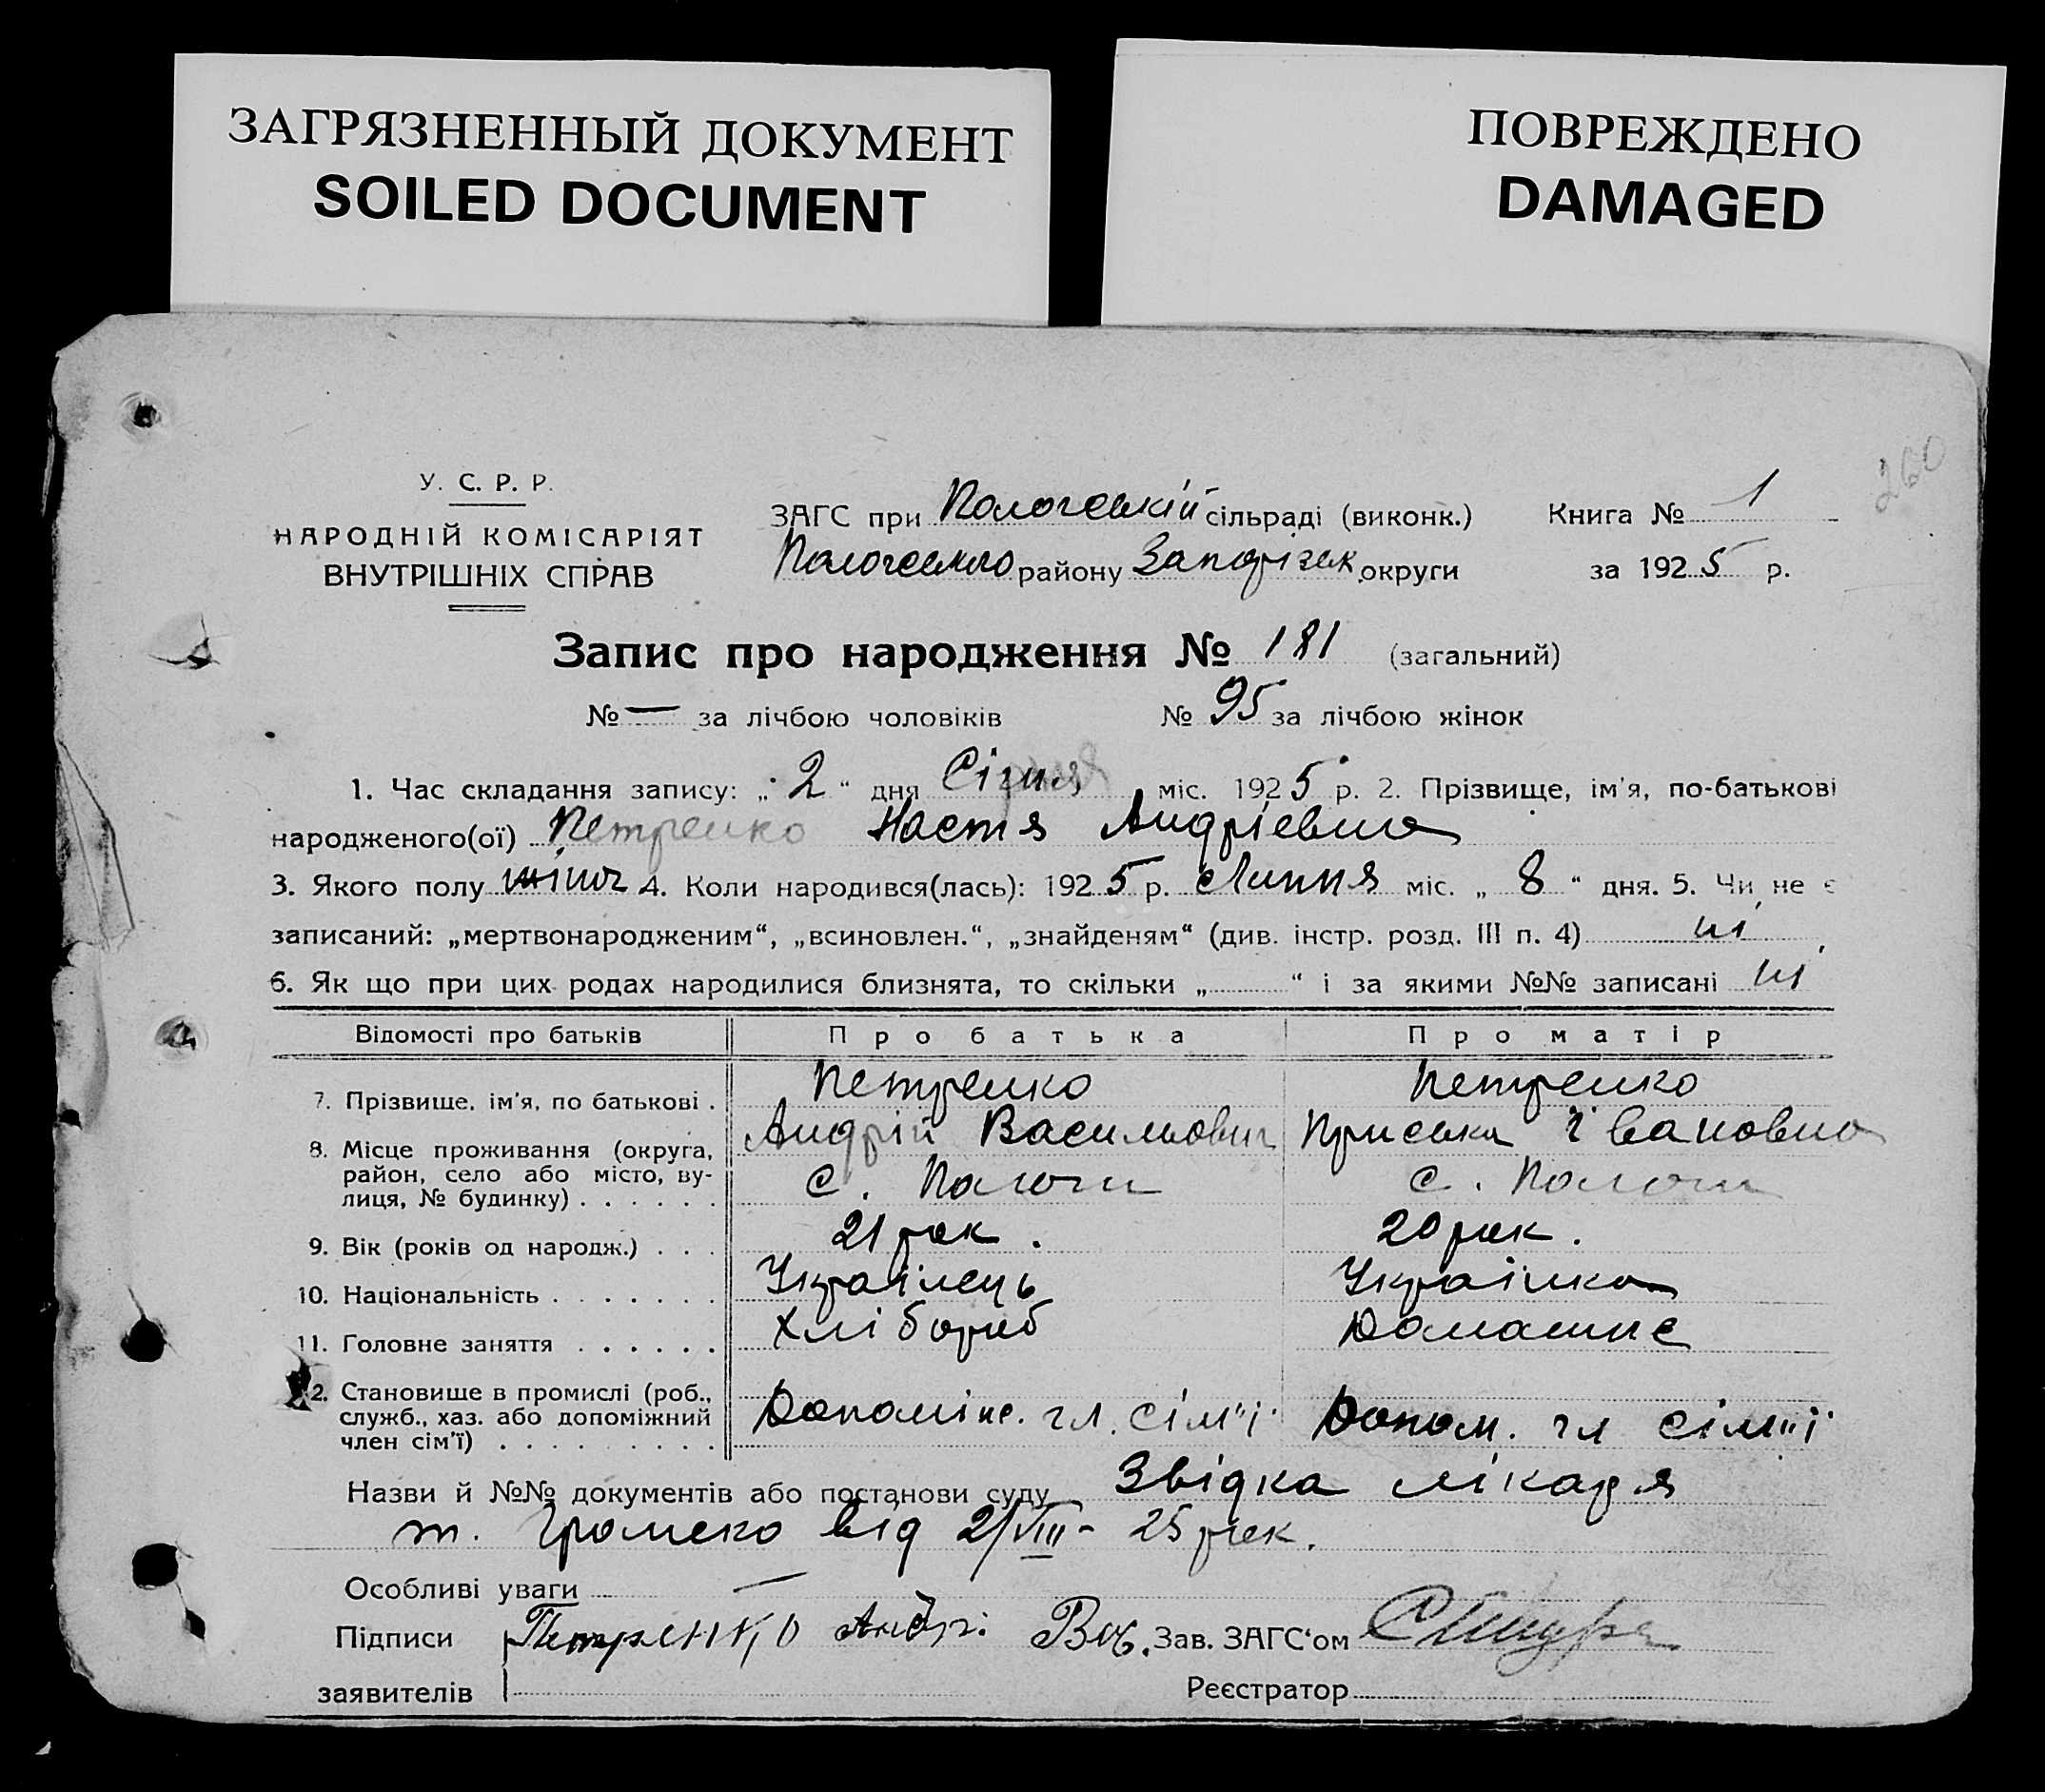 ЗАГРЯЗНЕННЫЙ ДОКУМЕНТ
SOILED DOCUMENT
ПОВРЕЖДЕНО
DAMAGED
260
У. С. Р. Р.
НАРОДНІЙ КОМІСАРІЯТ
ВНУТРІШНІХ СПРАВ
ЗАГС при Пологській сільраді (виконк.) Книга № 1
Пологського району Запоріжк. округи за 1925 р.
Запис про народження № 181 (загальний)
№ — за лічбою чоловіків № 95 за лічбою жінок
1. Час складання запису: „2“ дня міс. 1925 р. 2. Прізвище, ім'я, по-батькові
народженого(ої) Петренко Настя Андріевна
3. Якого полу жіноч 4. Коли народився(лась): 1925 р. Липня міс. „8“ дня. 5. Чи не є
записаний: „мертвонародженим“, „всиновлен.“, „знайденям“ (див. інстр. розд. III п. 4) ні
6. Як що при цих родах народилися близнята, то скільки „ “ і за якими №№ записані ні
Відомості про батьків Про батька Про матір
7. Прізвище, ім'я, по батькові . Петренко Петренко
Андрій Васильович Приська Івановна
8. Місце проживання (округа,
район, село або місто, ву-
лиця, № будинку) . . . . . . с. Пологи с. Пологи
9. Вік (років од народж.) . . . 21 рок. 20 рок.
10. Національність . . . . . . . Українець Українка
11. Головне заняття . . . . . . Хлібороб Домашнє
12. Становище в промислі (роб.,
служб., хаз. або допоміжний
член сім'ї) . . . . . . . . . Допоміж. чл. сім"ї Допом. чл сім"ї
Назви й №№ документів або постанови суду Звідка лікаря
т. Громеко від 2/VIII- 25 рок.
Особливі уваги —
Підписи Петренко Андрі Вас. Зав. ЗАГС'ом
заявителів Реєстратор